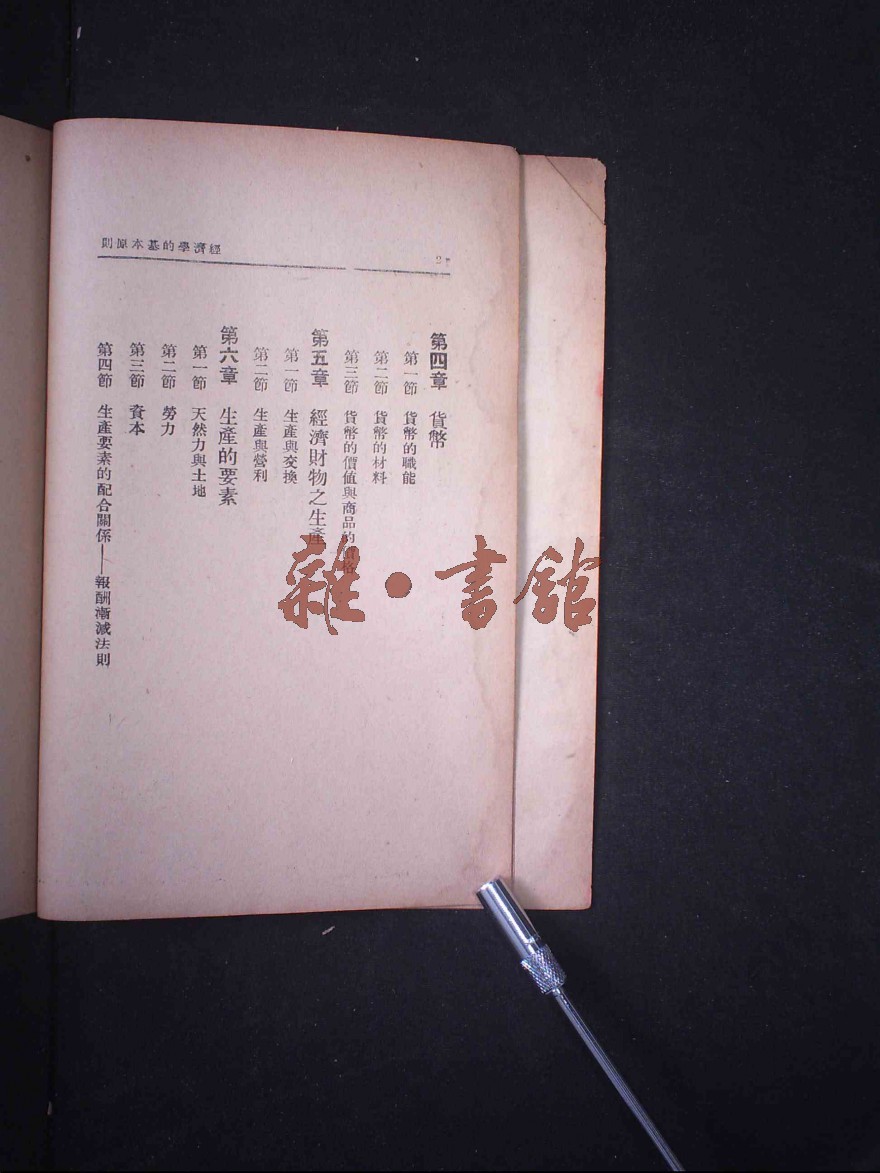 經濟學的基本原則
2
第四章 貨幣
第一節 貨幣的職能
第二節 貨幣的材料
第三節 貨幣的價值與商品的價格
第五章 經濟財物之生產
第一節 生產與交換
第二節 生產與營利
第六章 生產的要素
第一節 天然力與土地
第二節 勞力
第三節 資本
第四節 生產要素的配合關係——報酬漸減法則
雜·書館